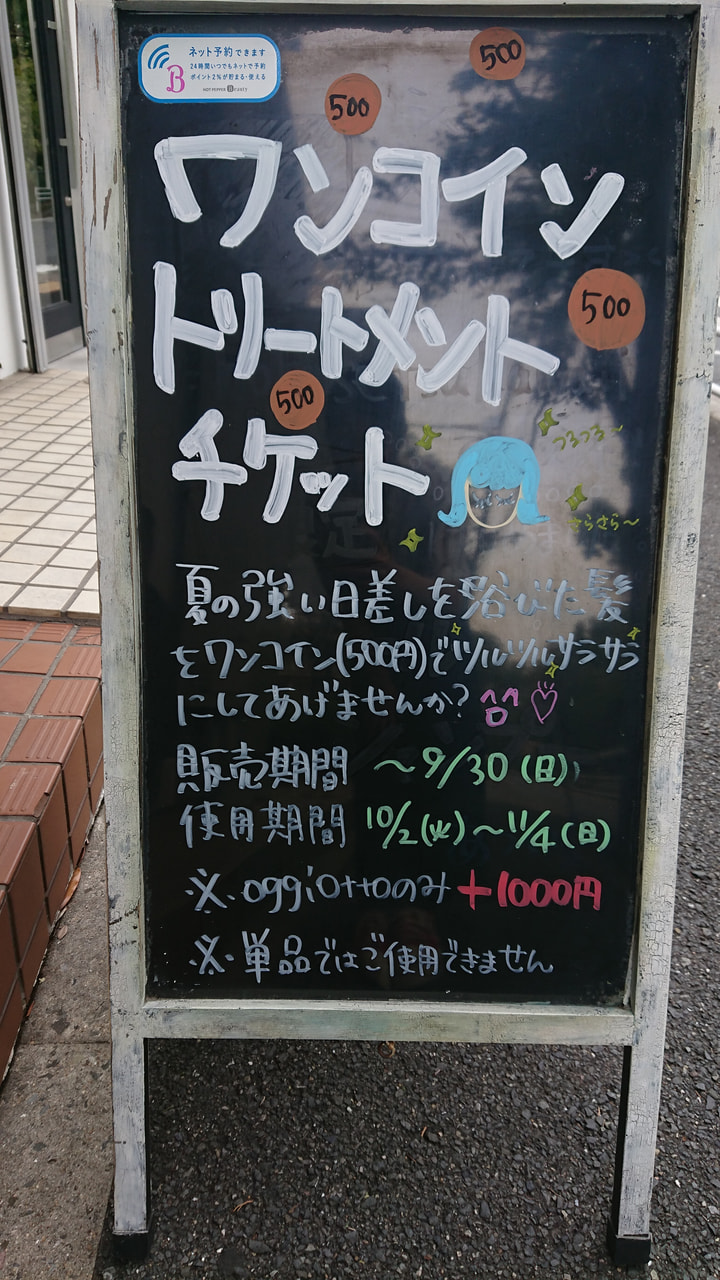 ネット予約できます
24時間いつでもネットで予約
ポイント2%が貯まる・使える
B HOT PEPPER Beauty
500
500
ワンコイン
トリートメント
500
500
チケット
つるつる～
さらさら～
夏の強い日差しを浴びた髪
をワンコイン(500円)でツルツルサラサラ
にしてあげませんか?
販売期間 ～9/30(日)
使用期間 10/2(火)～11/4(日)
※oggiottoのみ+1000円
※単品ではご使用できません